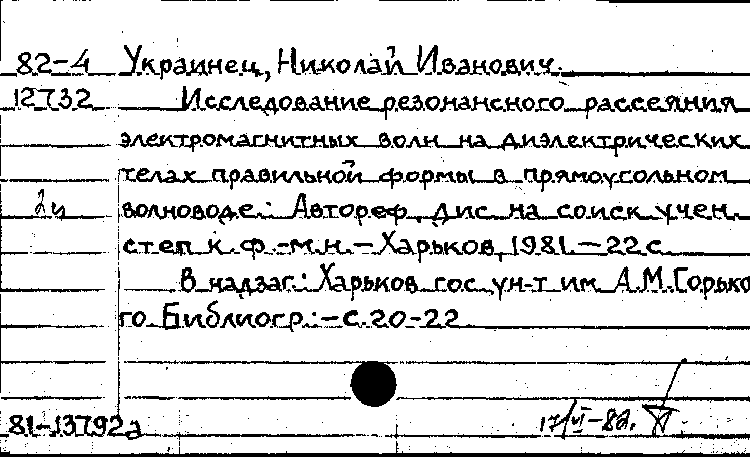 82-4 Украинец, Николай Иванович.
12732 Исследование резонансного рассеяния
электромагнитных волн на диэлектрических
телах правильной формы в прямоугольном
2и волноводе.: Автореф. дис. на соиск. учен.
степ к. ф.-м.н. - Харьков, 1981. - 22 с.
В надзаг.: Харьков. гос. ун-т им. А.М.Горько
го. Библиогр.: - с. 20-22
81-13792а 17/VI-82.